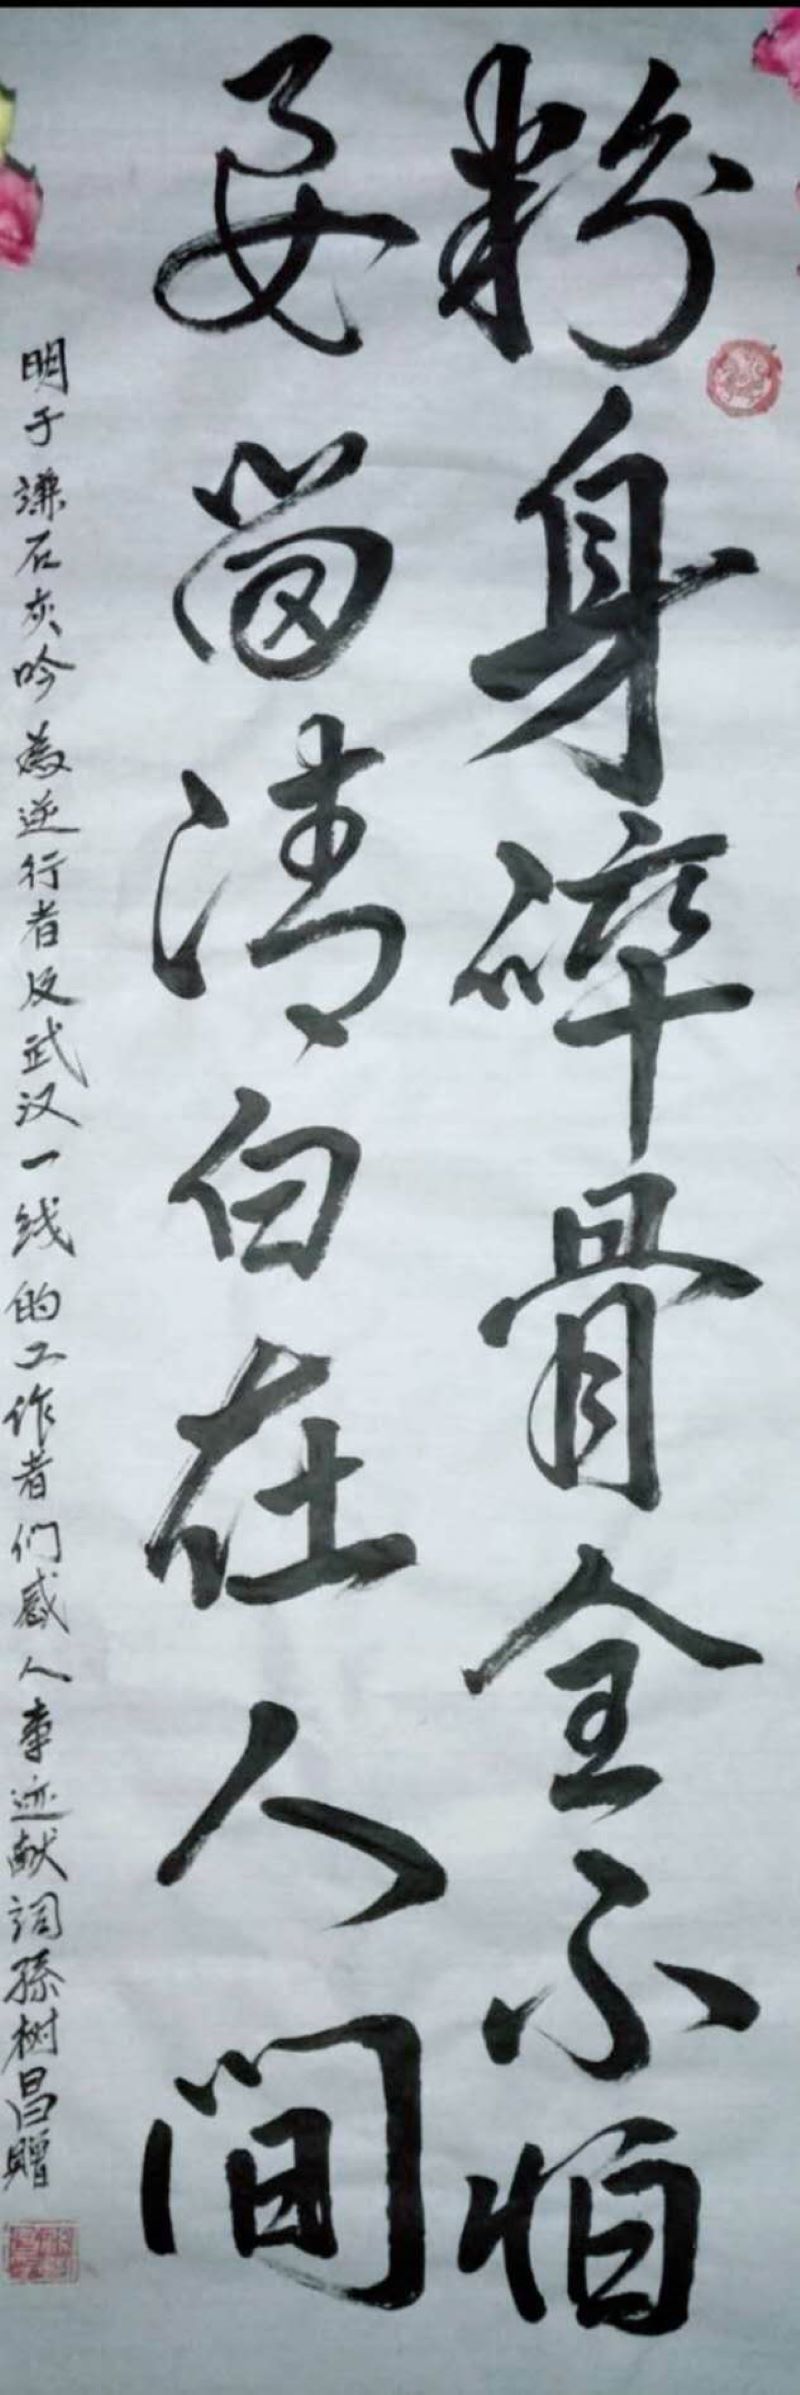 粉身碎骨全不怕
要留清白在人间
明于谦石灰吟为逆行者及武汉一线的工作者们感人事迹献词孙树昌赠